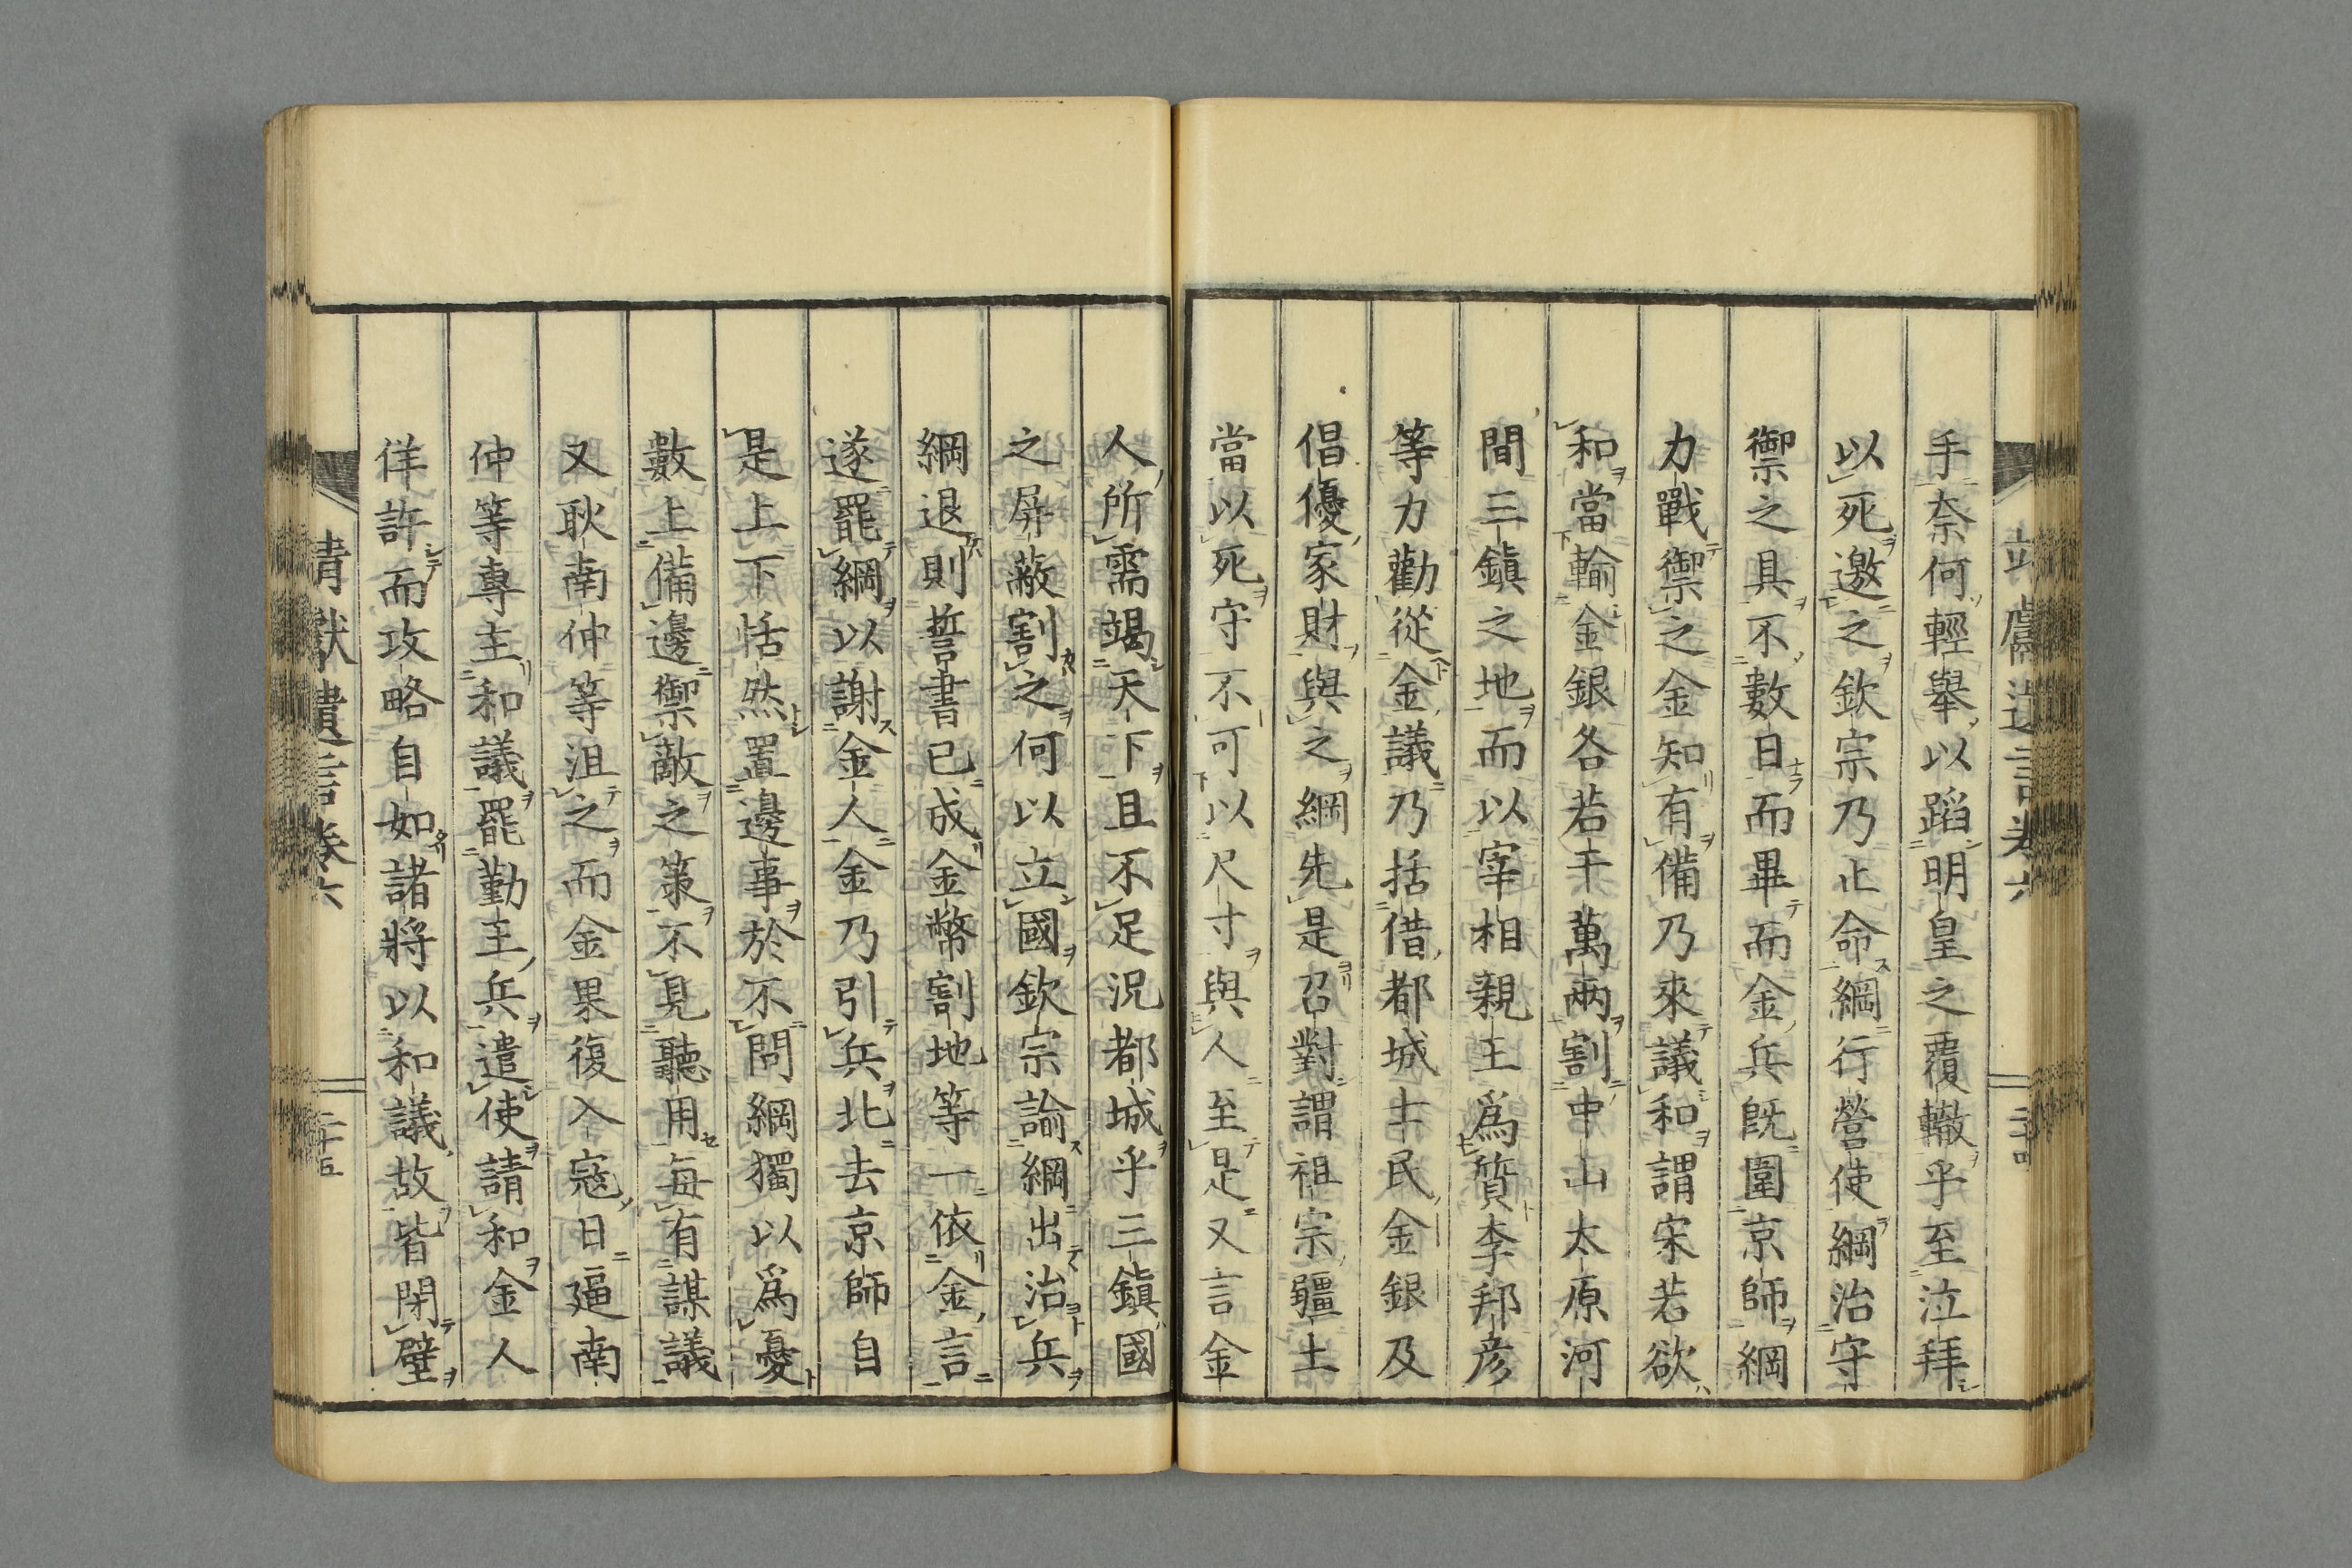 手奈何輕舉以蹈明皇之覆轍乎至泣拜
以死邀之欽宗乃止命綱行營使綱治守
禦之具不數日而畢而金兵既圍京師綱
力戰禦之金知有備乃來議和謂宋若欲
和當輸金銀各若干萬兩割中山太原河
間三鎮之地而以宰相親王爲質李邦彦
等力勸從金議乃括借都城士民金銀及
倡優家財與之綱先是召對謂祖宗疆土
當以死守不可以尺寸與人至是又言金
人所需竭天下且不足況都城乎三鎮國
之屏蔽割之何以立國欽宗諭綱出治兵
綱退則誓書已成金幣割地等一依金言
遂罷綱以謝金人金乃引兵北去京師自
是上下恬然置邊事於不問綱獨以爲憂
數上備邊禦敵之策不見聽用每有謀議
又耿南仲等沮之而金果復入寇日逼南
仲等專主和議罷勤王兵遣使請和金人
佯許而攻略自如諸將以和議故皆閉壁
靖獻遺言卷六
二十五